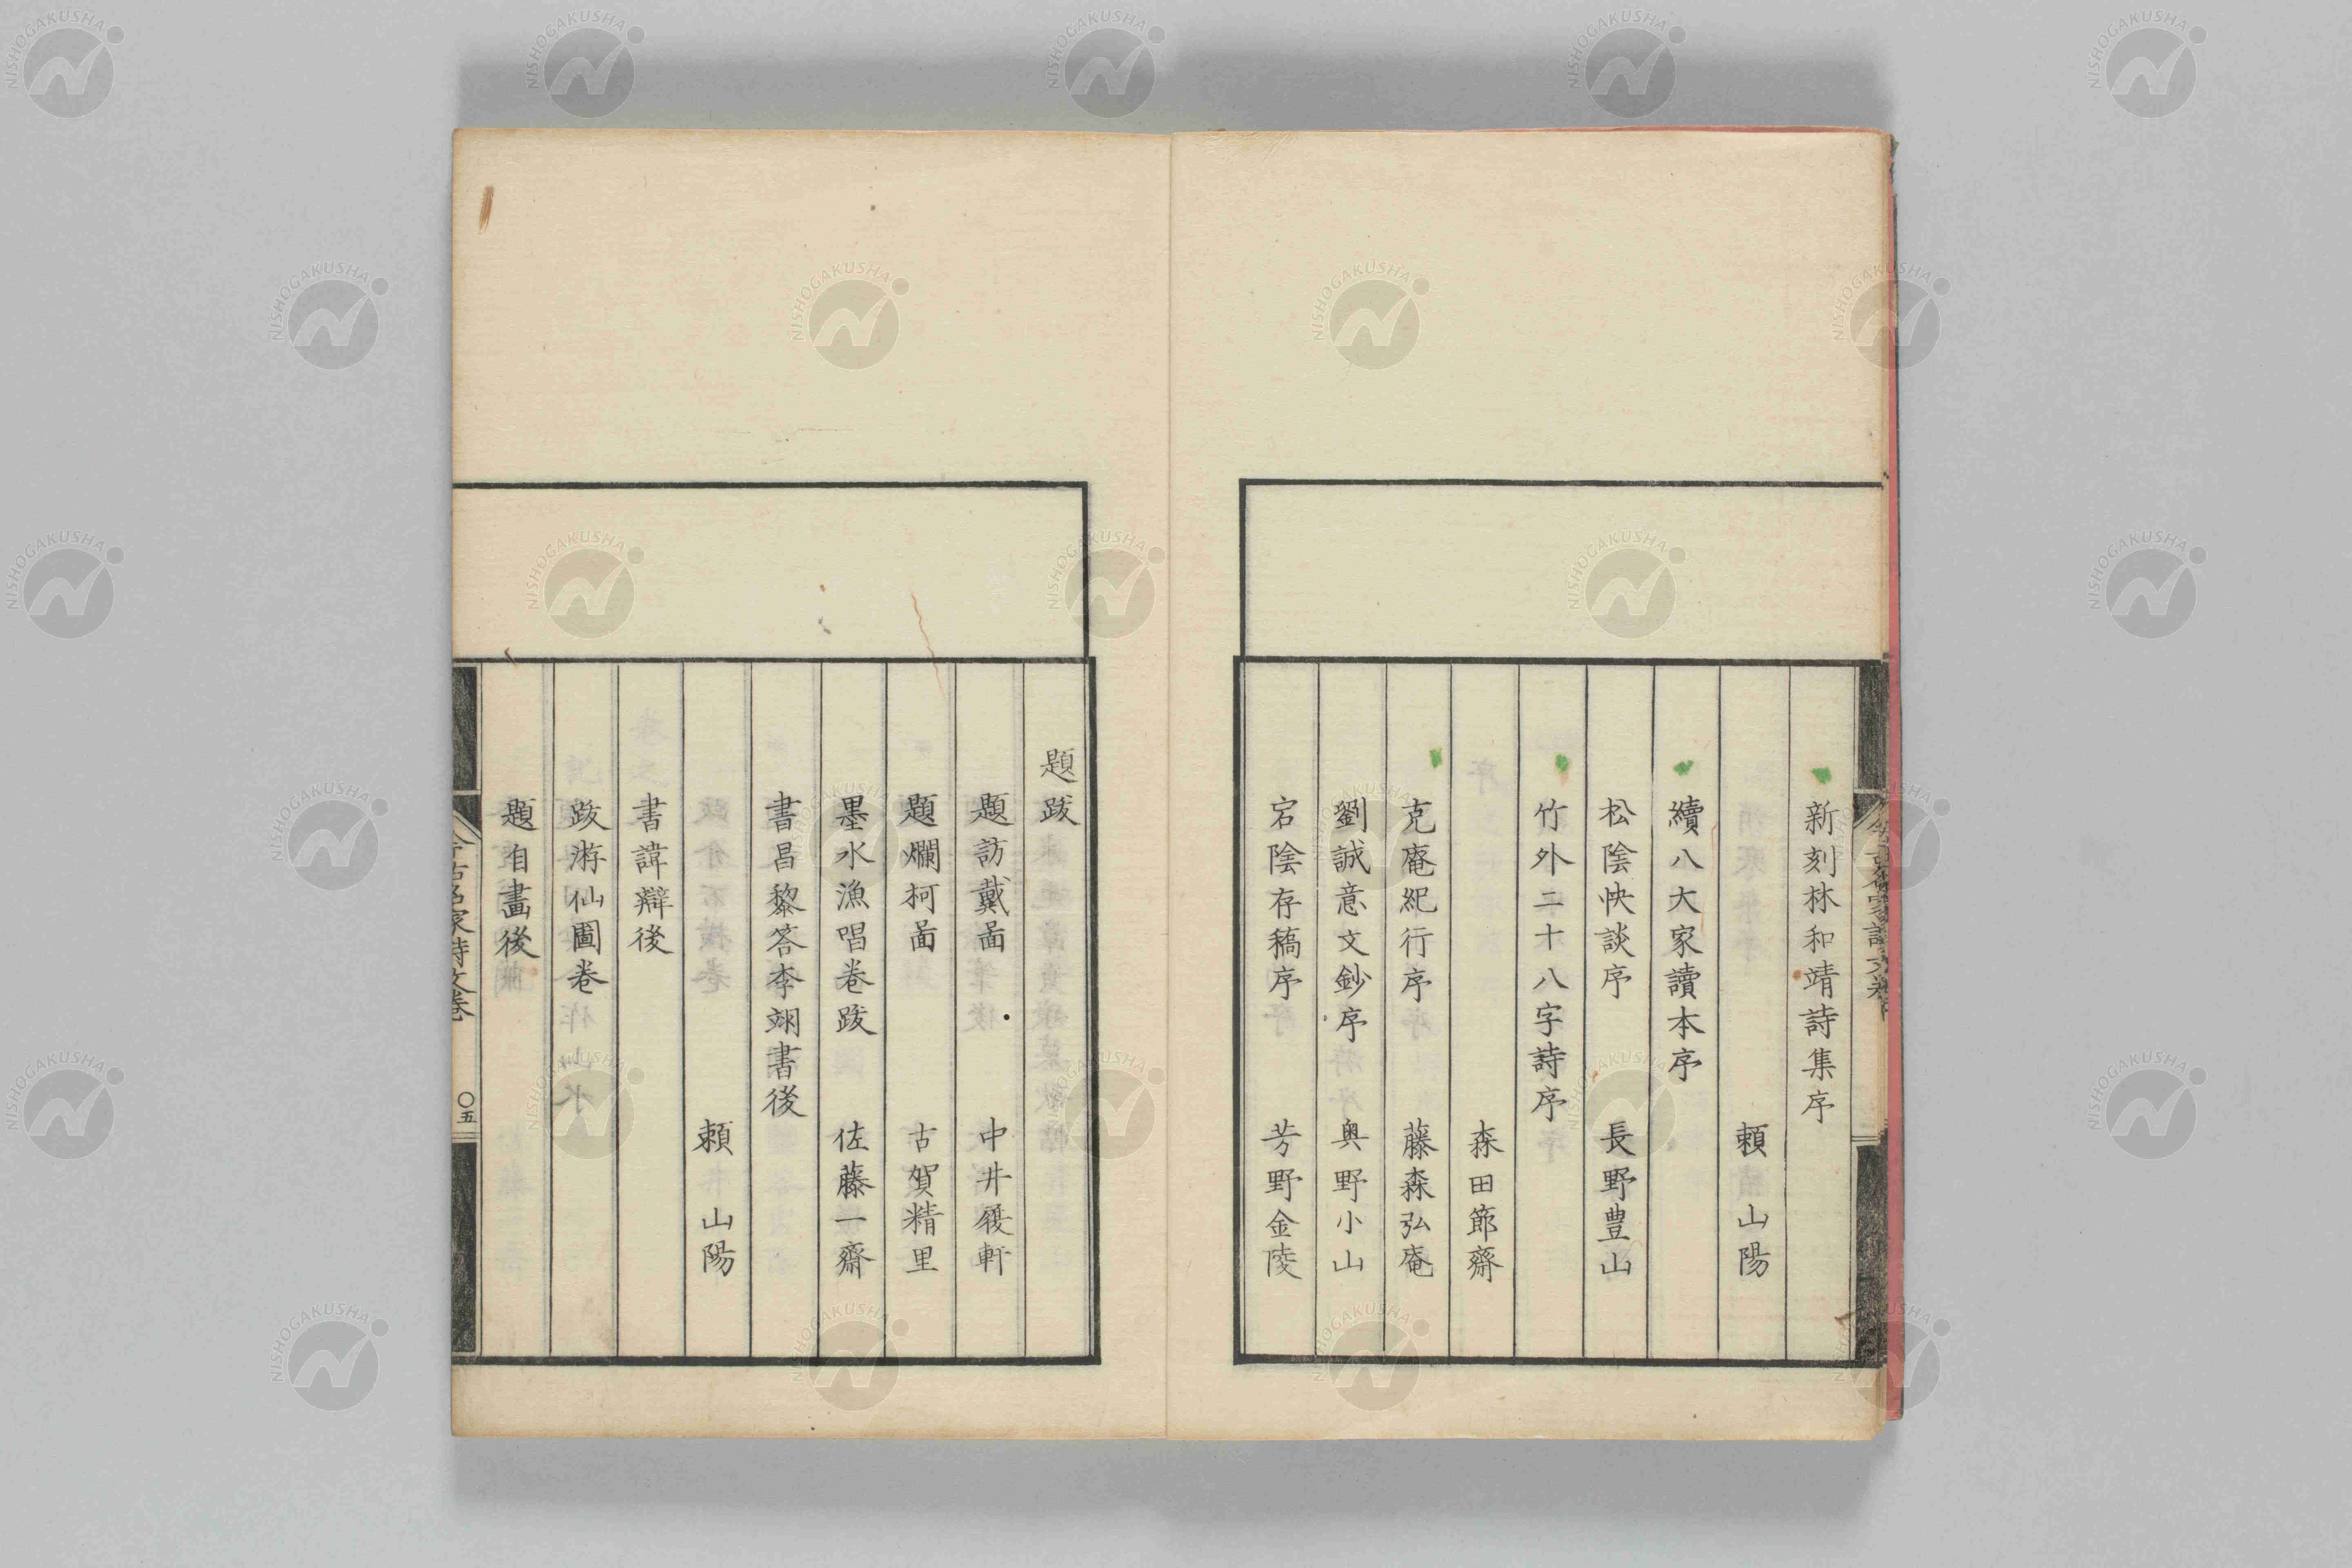 新刻林和靖詩集序
頼 山陽
續八大家讀本序
松陰快談序 長野豊山
竹外二十八字詩序
森田節齋
克庵紀行序 藤森弘庵
劉誠意文鈔序 奥野小山
宕陰存稿序 芳野金陵
題跋
題訪戴啚 中井履軒
題爛柯啚 古賀精里
墨水漁唱卷跋 佐藤一齋
書昌黎答李翊書後
頼 山陽
書諱辯後
跋游仙圖卷
題自畫後
今古名家詩文卷
〇五
NISHOGAKUSHA